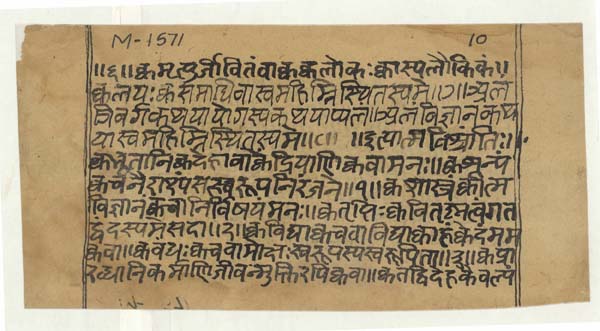 M-1571 10
॥६॥ क्व मृत्युर्जीवितं वा क्व क्व लोकः क्वास्य लौकिकं ॥
क्व लयः क्व समाधिर्वा स्वमहिम्नि स्थितस्य मे ॥७॥ अलं
त्रिवर्गकथया योगस्य कथयाप्यलं ॥ अलं विज्ञानकथ
या स्वमहिम्नि स्थितस्य मे ॥८॥ इत्यात्मविश्रांतिः ॥
क्व भूतानि क्व देहो वा क्वेंद्रियाणि क्व वा मनः ॥ क्व शून्यं
क्व च नैराश्यं मत्स्वरूपे निरंजने ॥१॥ क्व शास्त्रं क्वात्म
विज्ञानं क्व वा निर्विषयं मनः ॥ क्व तृप्तिः क्व वितृष्णत्वं गत
द्वंद्वस्य मे सदा ॥२॥ क्व विद्या क्व च वाविद्या क्वाहं क्वेदं मम
क्व वा ॥ क्व बंधः क्व च वा मोक्षः स्वरूपस्य क्व रूपिता ॥३॥ क्व प्रा
रब्धानि कर्माणि जीवन्मुक्तिरपि क्व वा ॥ क्व तद्विदेहकैवल्यं